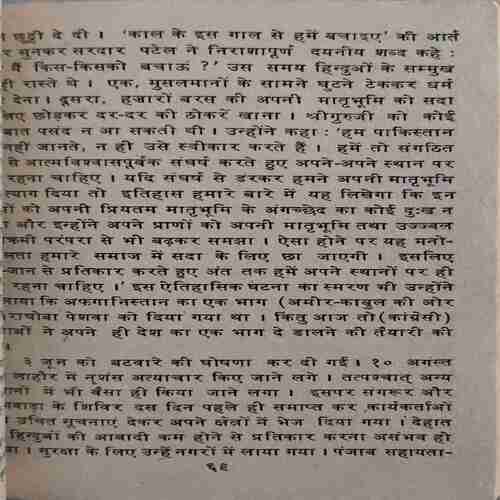 छुट्टी दे दी । 'काल के इस गाल से हमें बचाइए' की आर्त
र सुनकर सरदार पटेल ने निराशापूर्ण दयनीय शब्द कहे :
मैं किस-किसको बचाऊं ?' उस समय हिन्दुओं के सम्मुख
ही रास्ते थे । एक, मुसलमानों के सामने घुटने टेककर धर्म
देना । दूसरा, हजारों बरस की अपनी मातृभूमि को सदा
लिए छोड़कर दर-दर की ठोकरें खाना । श्रीगुरुजी को कोई
बात पसंद न आ सकती थी । उन्होंने कहा : 'हम पाकिस्तान
नहीं जानते, न ही उसे स्वीकार करते हैं । हमें तो संगठित
से आत्मविश्वासपूर्वक संघर्ष करते हुए अपने-अपने स्थान पर
रहना चाहिए । यदि संघर्ष से डरकर हमने अपनी मातृभूमि
त्याग दिया तो इतिहास हमारे बारे में यह लिखेगा कि इन
ों को अपनी प्रियतम मातृभूमि के अंगच्छेद का कोई दुःख न
ा और इन्होंने अपने प्राणों को अपनी मातृभूमि तथा उज्ज्वल
क्रमी परंपरा से भी बढ़कर समझा । ऐसा होने पर यह मनो-
लता हमारे समाज में सदा के लिए छा जाएगी । इसलिए
-जान से प्रतिकार करते हुए अंत तक हमें अपने स्थानों पर ही
रहना चाहिए ।' इस ऐतिहासिक घटना का स्मरण भी उन्होंने
लाया कि अफगानिस्तान का एक भाग (अमीर-काबुल की ओर
राघोबा पेशवा को दिया गया था । किंतु आज तो (कांग्रेसी)
ाओं ने अपने ही देश का एक भाग दे डालने की तैयारी की
।
३ जून को बटवारे की घोषणा कर दी गई । १० अगस्त
लाहौर में नृशंस अत्याचार किए जाने लगे । तत्पश्चात् अन्य
ानों में भी वैसा ही किया जाने लगा । इसपर संगरूर और
गवाड़ा के शिविर दस दिन पहले ही समाप्त कर कार्यकर्ताओं
उचित सूचनाएं देकर अपने क्षेत्रों में भेज दिया गया । देहात
हिन्दुओं की आबादी कम होने से प्रतिकार करना असंभव हो
ा । सुरक्षा के लिए उन्हें नगरों में लाया गया । पंजाब सहायता-
६९